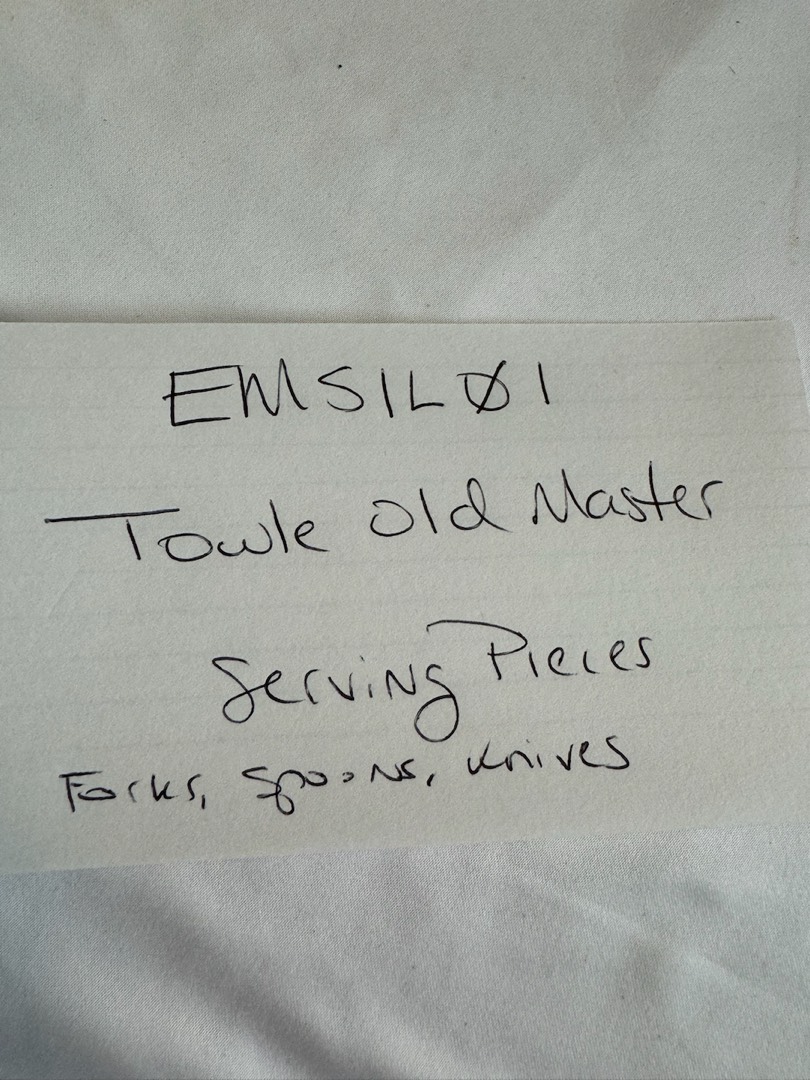 EMSILØ1
Towle Old Master
Serving Pieces
Forks, Spoons, Knives